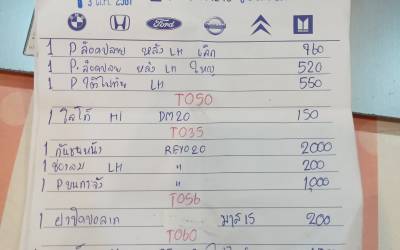 3 ต.ค. 2561
Ford
1 P. ล็อคปลาย หลัง LH เล็ก 960
1 P. ล็อคปลาย หลัง LH ใหญ่ 520
1 P ใต้ไฟท้าย LH 550
TO50
1 โลโก้ HI DM20 150
TO35
1 กันชนหน้า REVO20 2000
1 ช่องลม LH " 200
1 P ขนกาจัง " 1,000
TO56
1 ฝาปิดขอลาก มาส 15 200
TO60